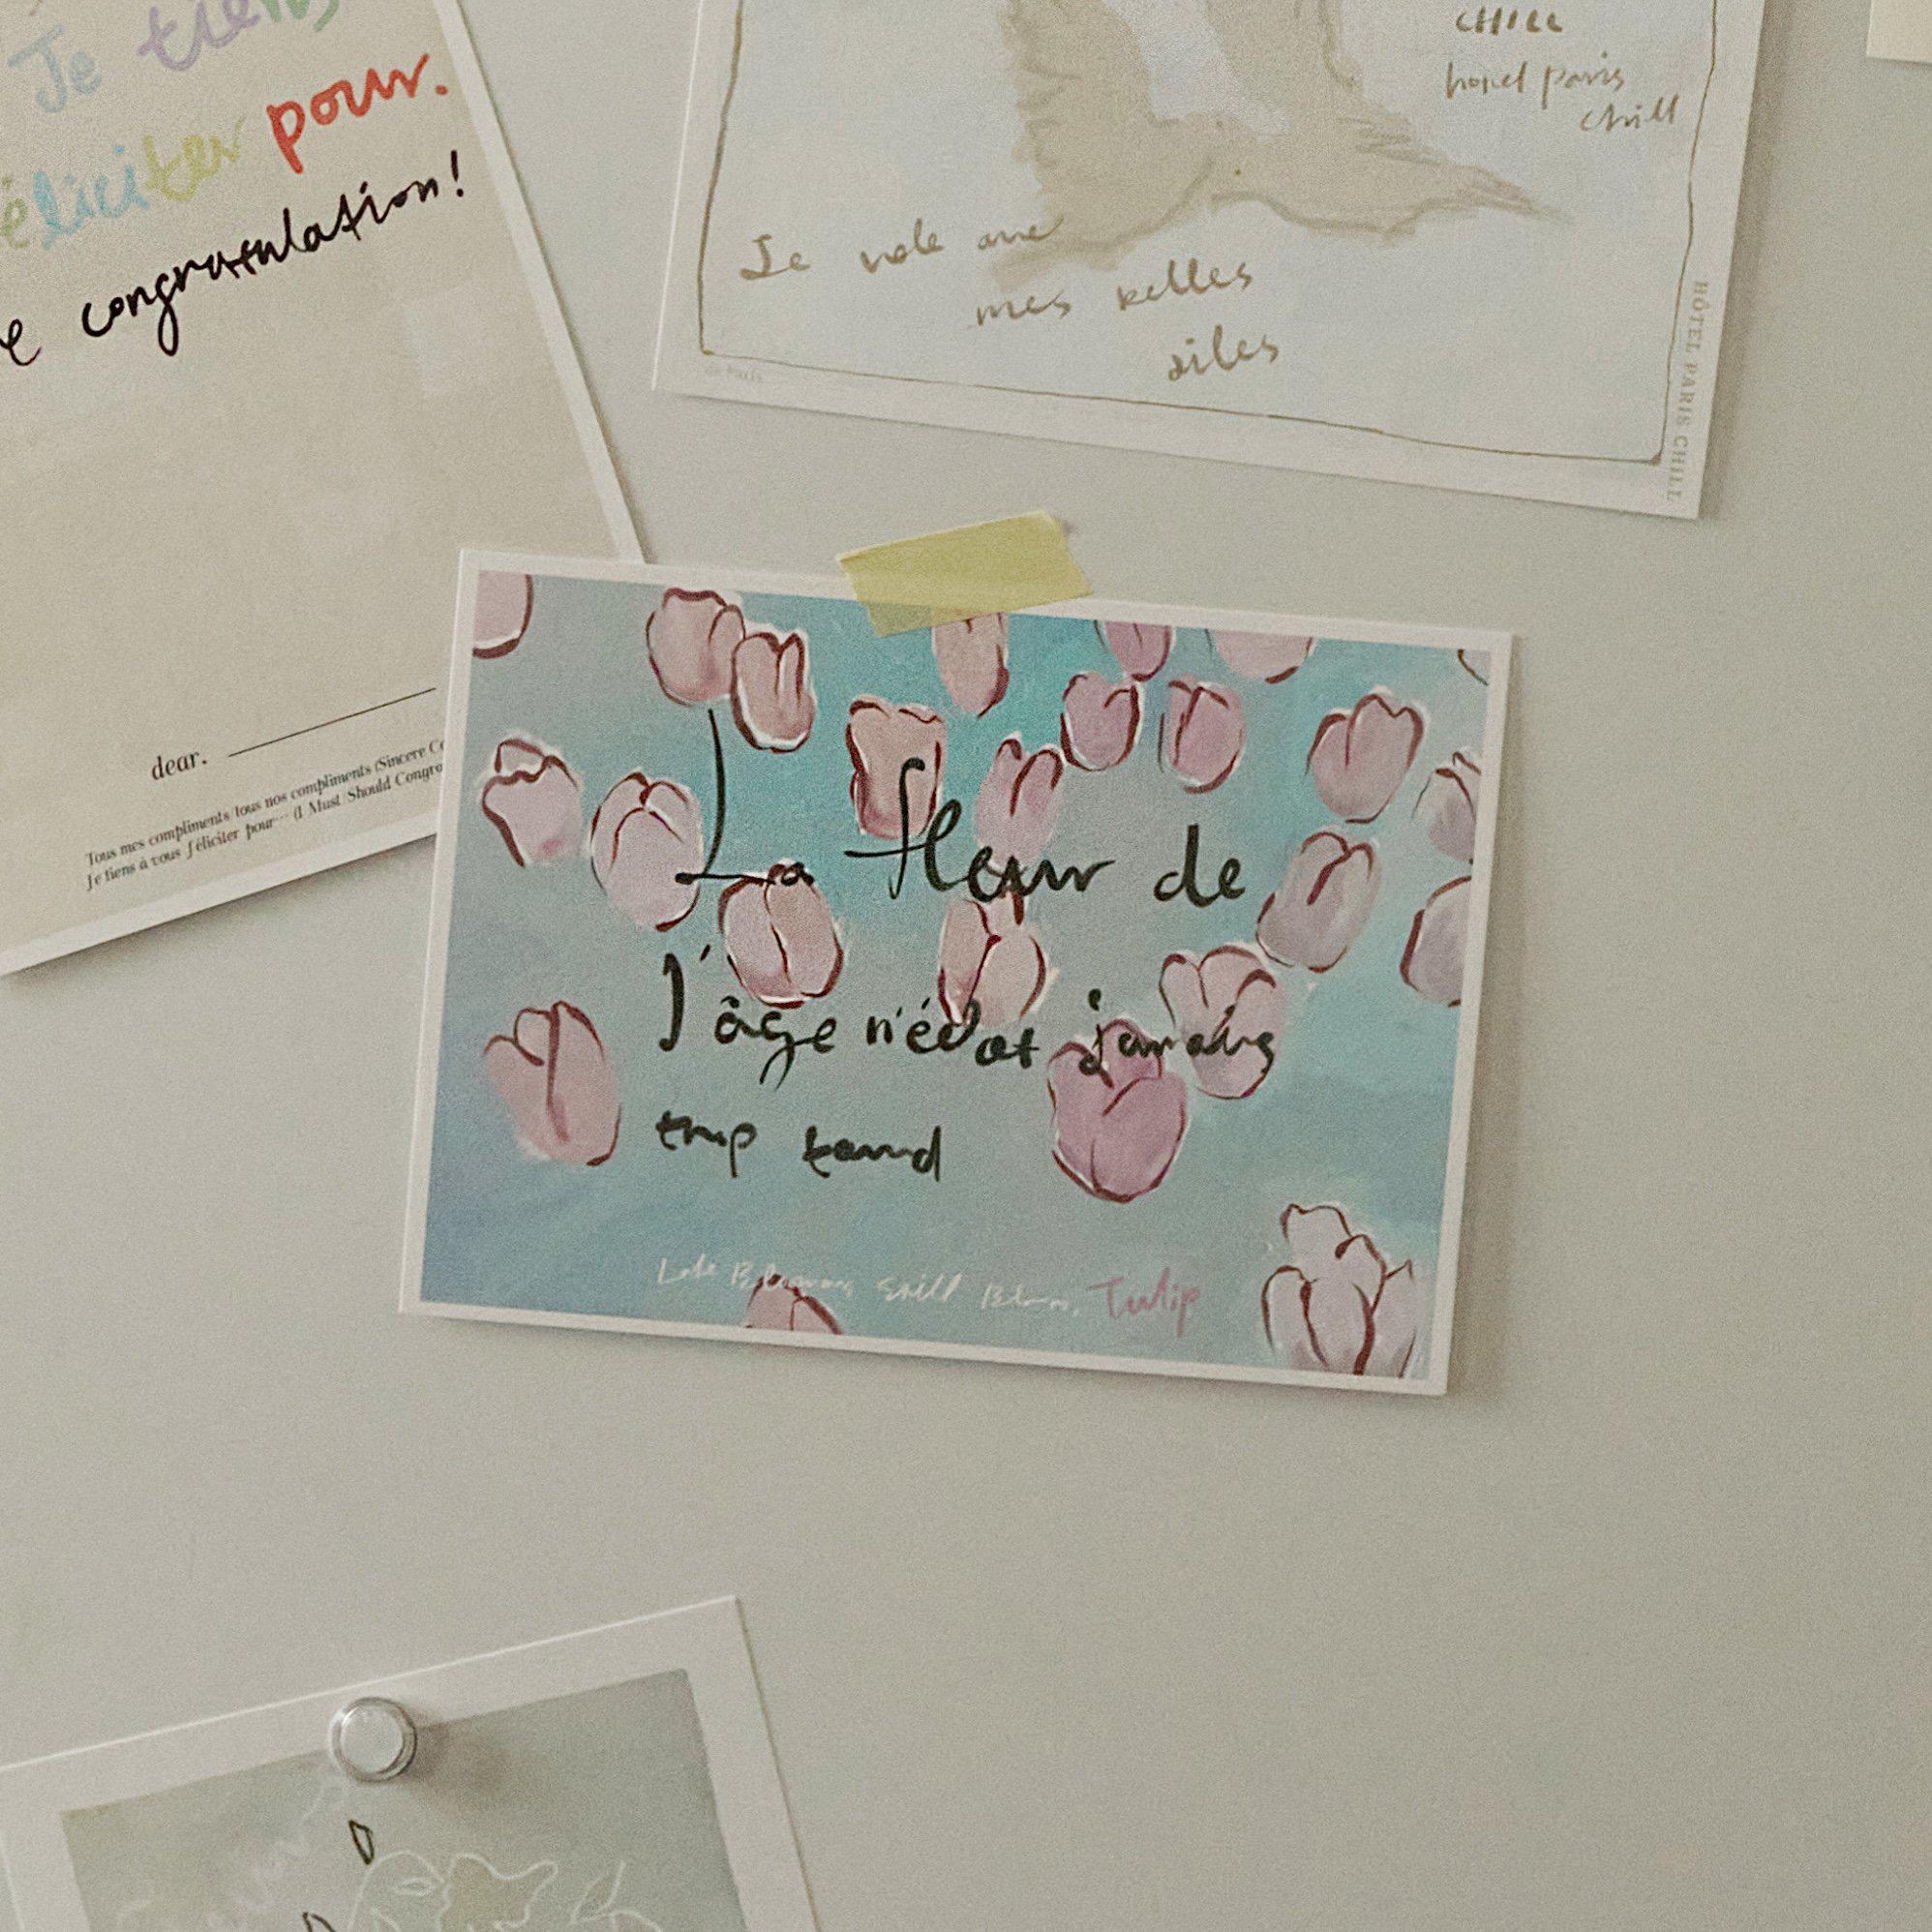 Je tiens
éliciter pour.
e congratulation!
dear.
Tous mes compliments/tous nos compliments (Sincere Co
Je tiens à vous féliciter pour… (I Must/Should Congra
CHILL
hotel paris
chill
Je vole avec
mes belles
ailes
HÔTEL PARIS CHILL
La fleur de
l'âge n'éclot jamais
trop tard
Late Blooming Still Bloom, Tulip